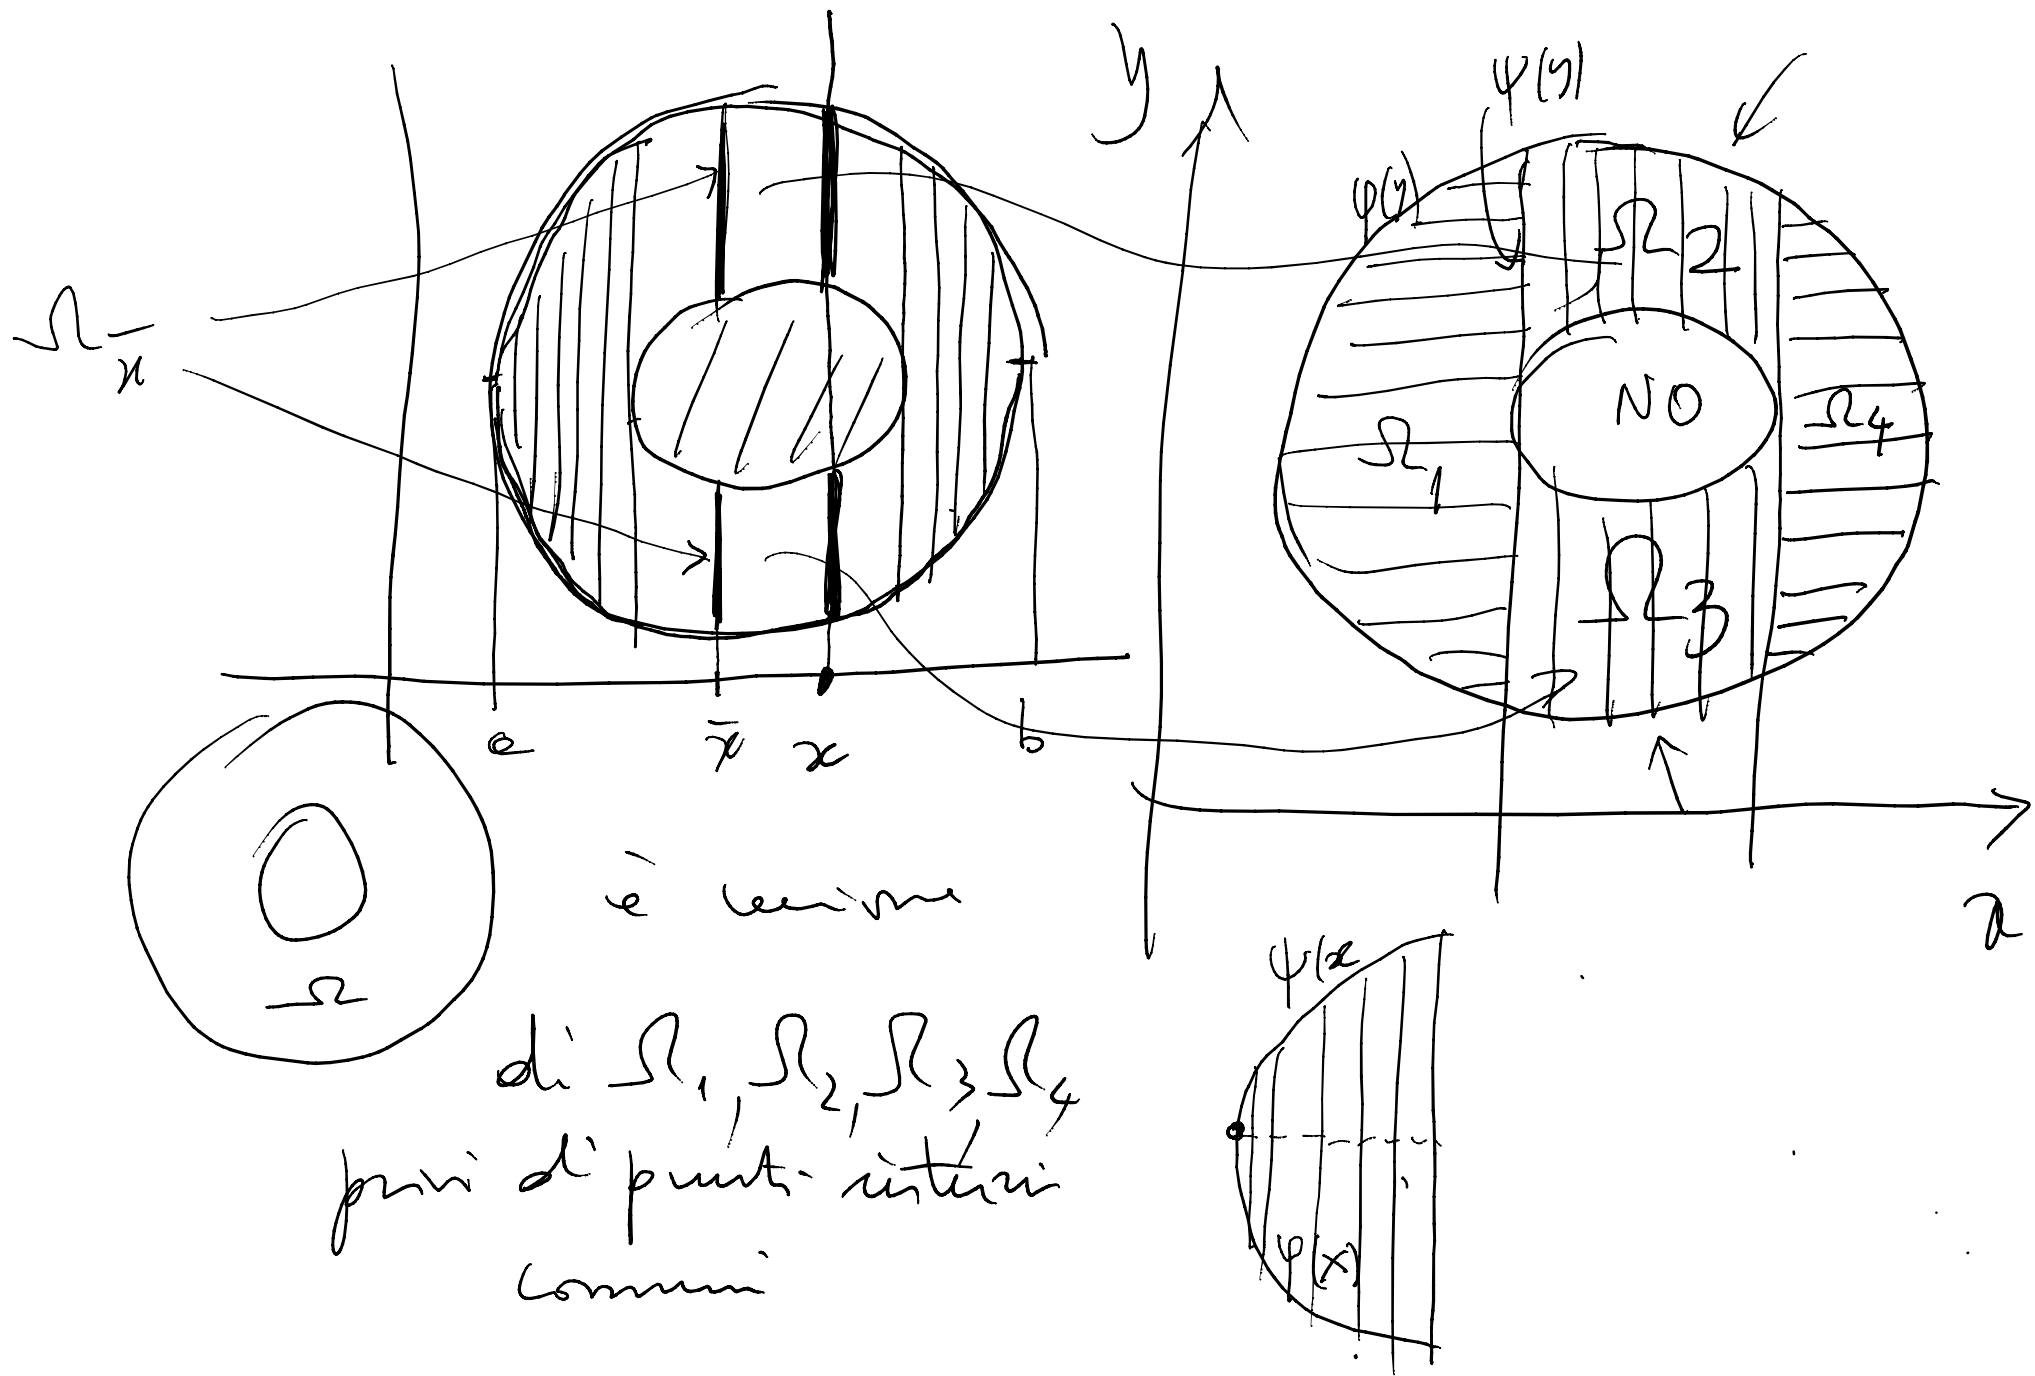 y
ψ(y)
φ(y)
Ω2
Ω x̄
NO
Ω1
Ω4
Ω3
a x̄ x b
x
Ω
è unione
di Ω1, Ω2, Ω3, Ω4
privi di punti interni
comuni
ψ(x
φ(x)